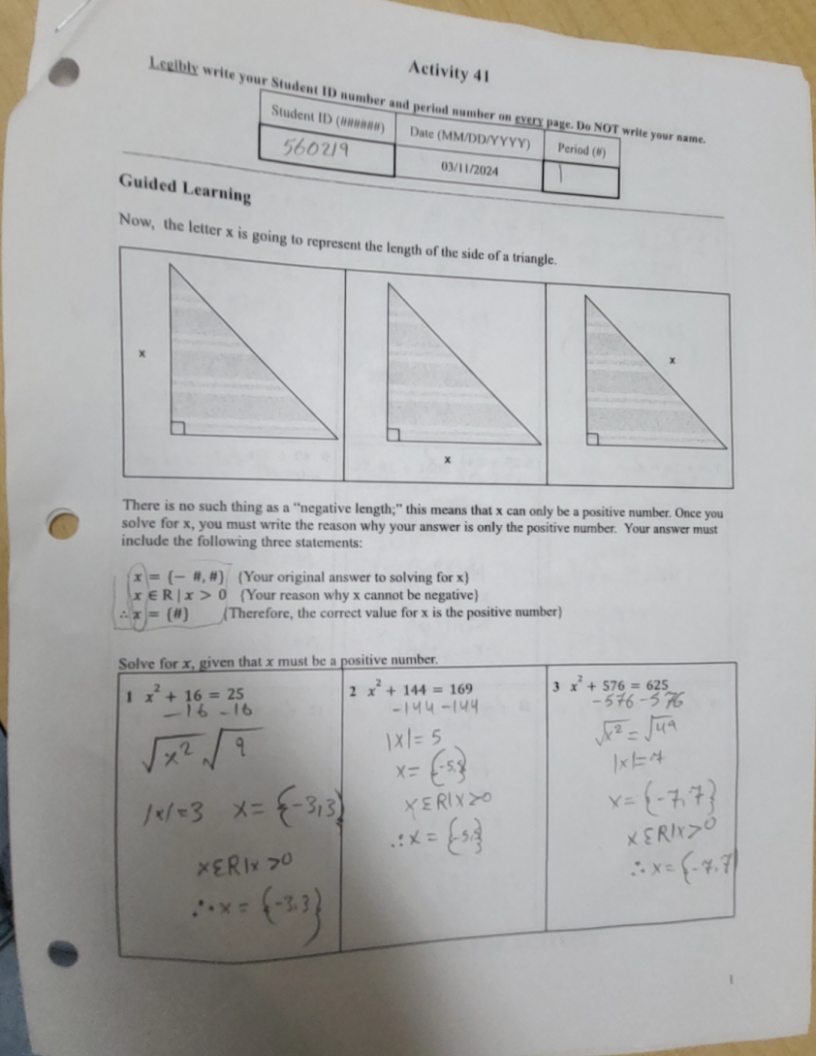 Activity 41
Legibly write your Student ID number and period number on every page. Do NOT write your name.
Student ID (######) Date (MM/DD/YYYY) Period (#)
560219 03/11/2024 1
Guided Learning
Now, the letter x is going to represent the length of the side of a triangle.
x
x
x
There is no such thing as a “negative length;” this means that x can only be a positive number. Once you
solve for x, you must write the reason why your answer is only the positive number. Your answer must
include the following three statements:
x = {− #, #} (Your original answer to solving for x)
x ∈ R | x > 0 (Your reason why x cannot be negative)
∴ x = {#} (Therefore, the correct value for x is the positive number)
Solve for x, given that x must be a positive number.
1 x² + 16 = 25
-16 -16
√x² √9
|x|=3 x= {-3,3}
xεR|x >0
∴x = {-3,3}
2 x² + 144 = 169
-144 -144
|x|= 5
x= {-5,5}
xεR|x>0
∴x = {-5,5}
3 x² + 576 = 625
-576 -576
√x² = √49
|x|=7
x= {-7,7}
xεR|x>0
∴x={-7,7}
1